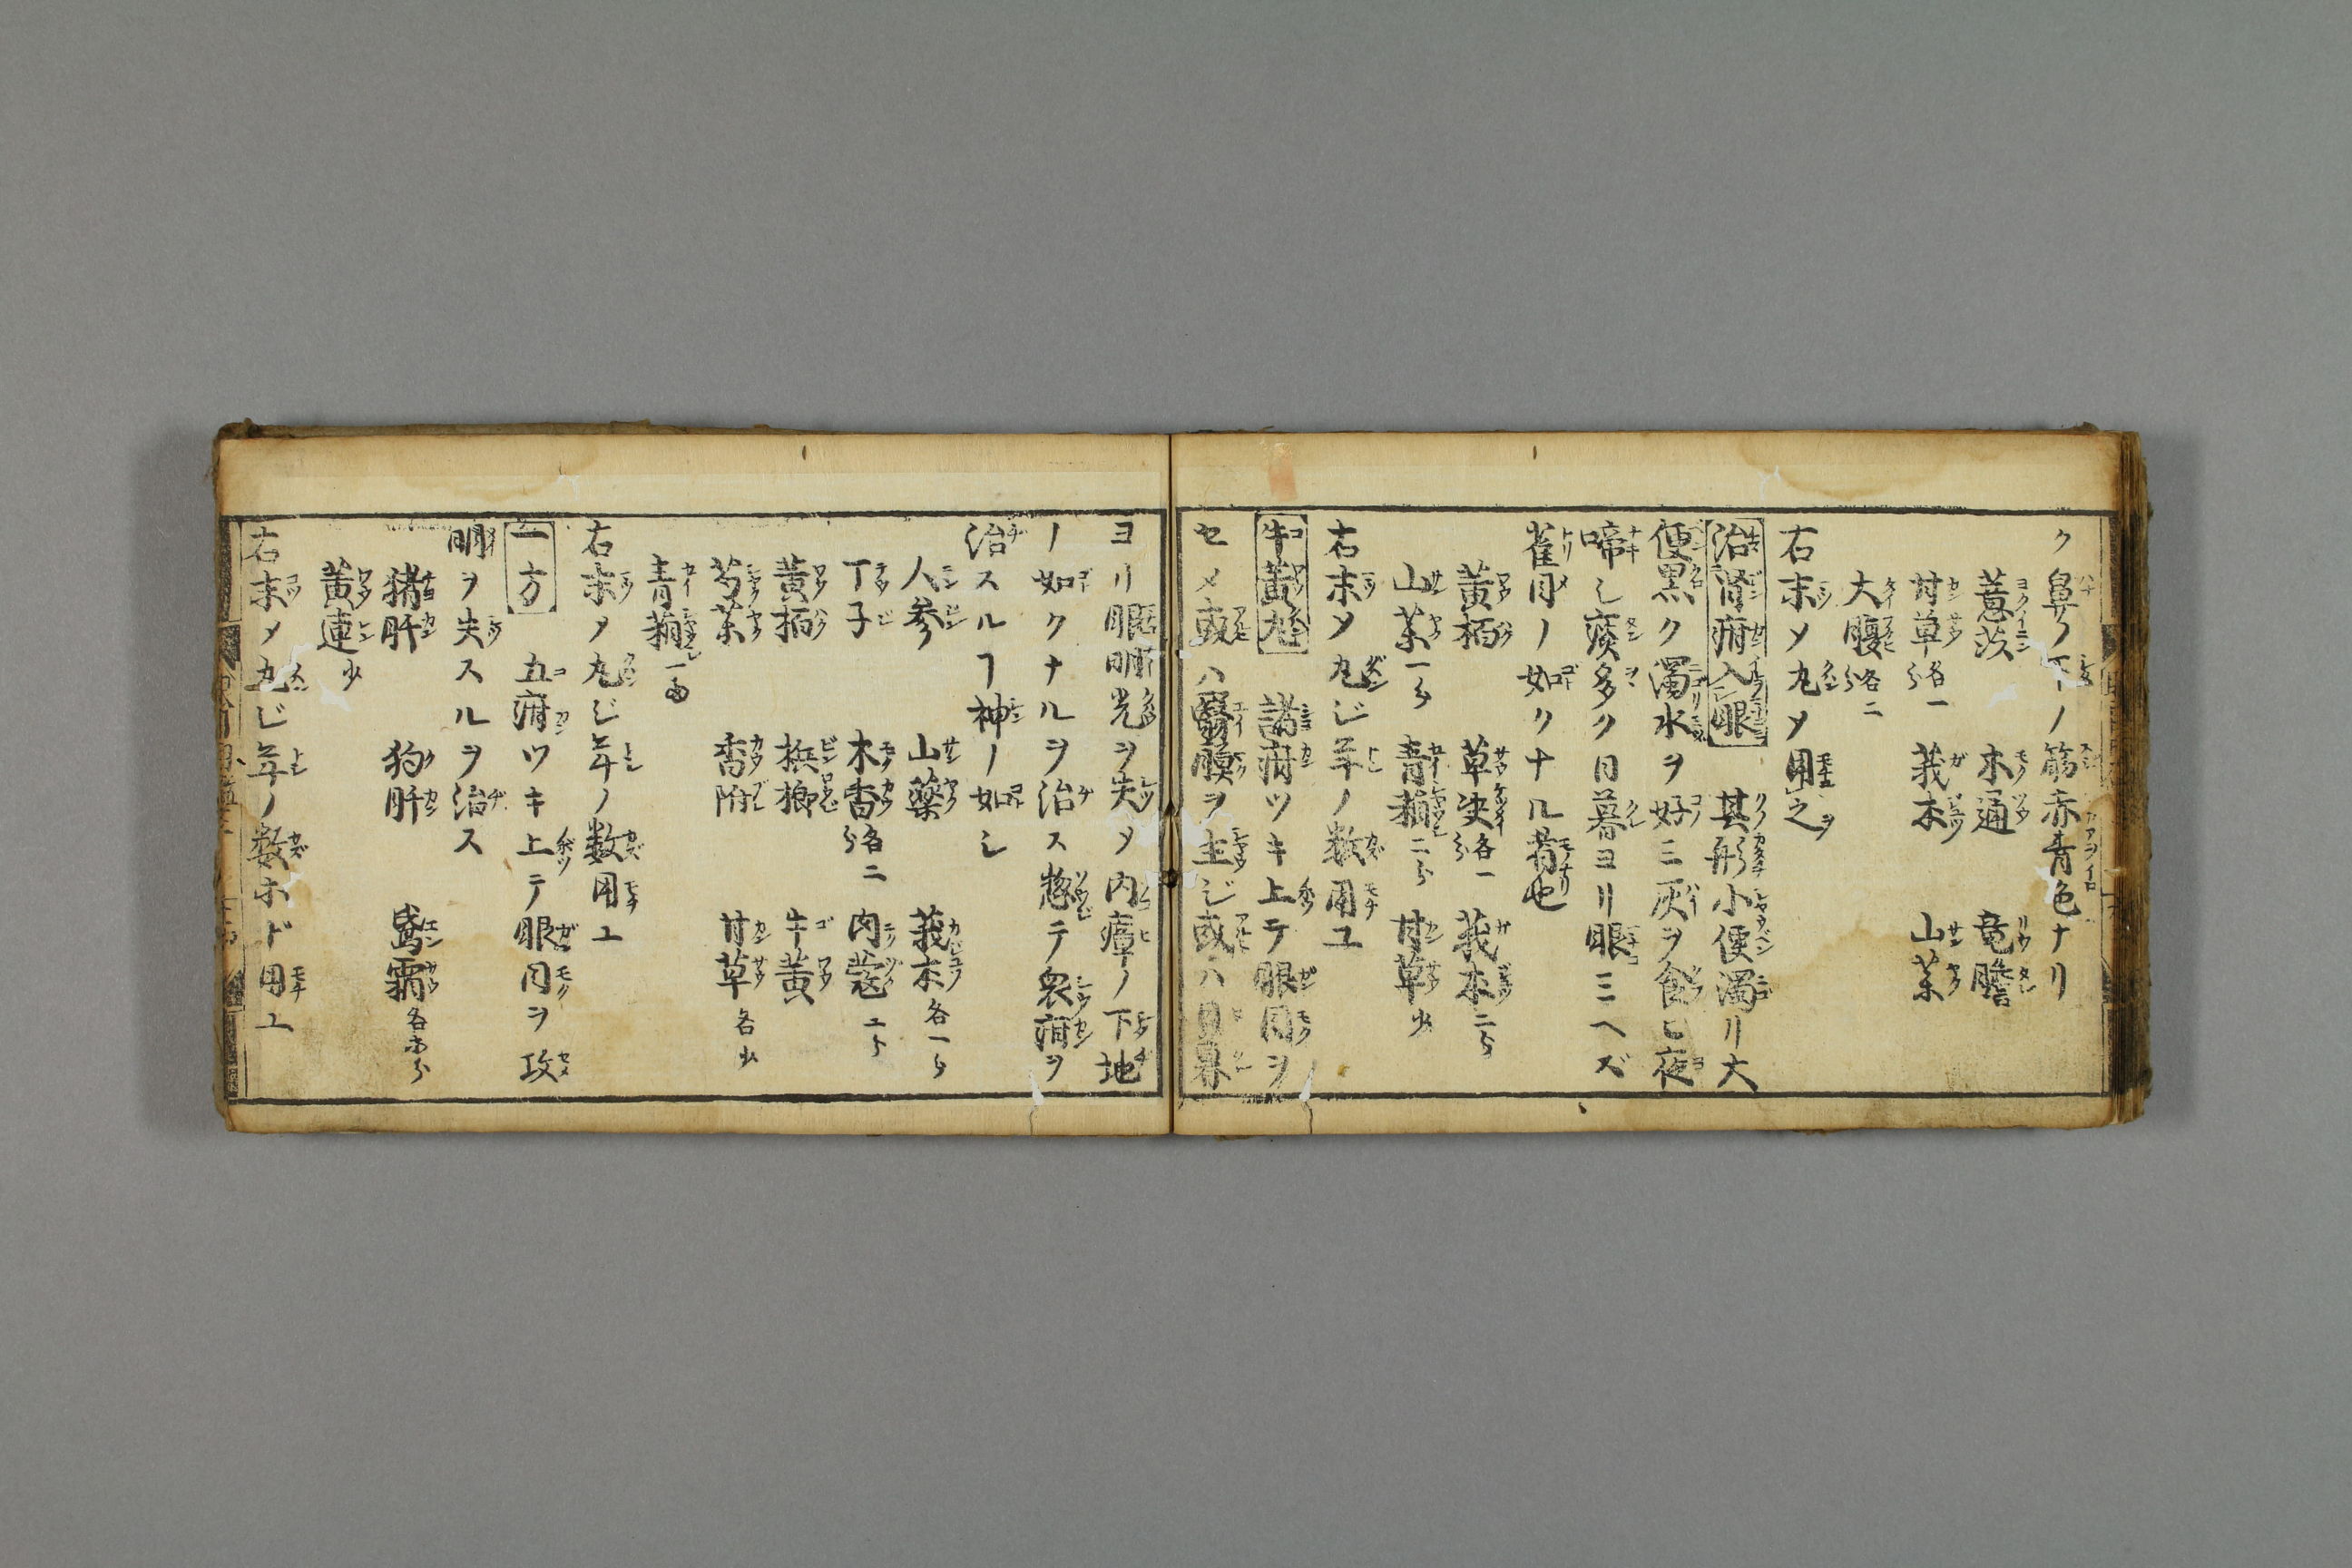 ク鼻ノ下ノ筋赤青色ナリ
薏苡 木通 竜膽
甘草各一分 莪朮 山茱
大腹各二分
右末メ丸メ用之ヲ
治腎疳入眼 其形小便濁リ大
便黒ク濁水ヲ好ミ灰ヲ食ヒ夜
啼シ痰多ク日暮ヨリ眼ミヘズ
雀目ノ如クナル者也
黄栢 草决各一分 莪朮二分
山茱一分 青箱二分 甘草少
右末メ丸ジ年ノ数用ユ
牛黄丸 諸疳ツキ上テ眼目ヲ
セメ或ハ瞖膜ヲ生ジ或ハ目暴
ヨリ眼明光ヲ失メ内瘴ノ下地
ノ如クナルヲ治ス惣テ衆疳ヲ
治スルヿ神ノ如シ
人参 山藥 莪朮各一分
丁子 木香各二分 肉蔲二分
黄栢 梹榔 牛黄
芍茱 香附 甘草各少
青箱一匁
右末メ丸ジ年ノ数用ユ
一方 五疳ツキ上テ眼目ヲ攻
明ヲ失スルヲ治ス
猪肝 狗肝 鳶霜各等分
黄連少
右末メ丸ジ年ノ数ホド用ユ